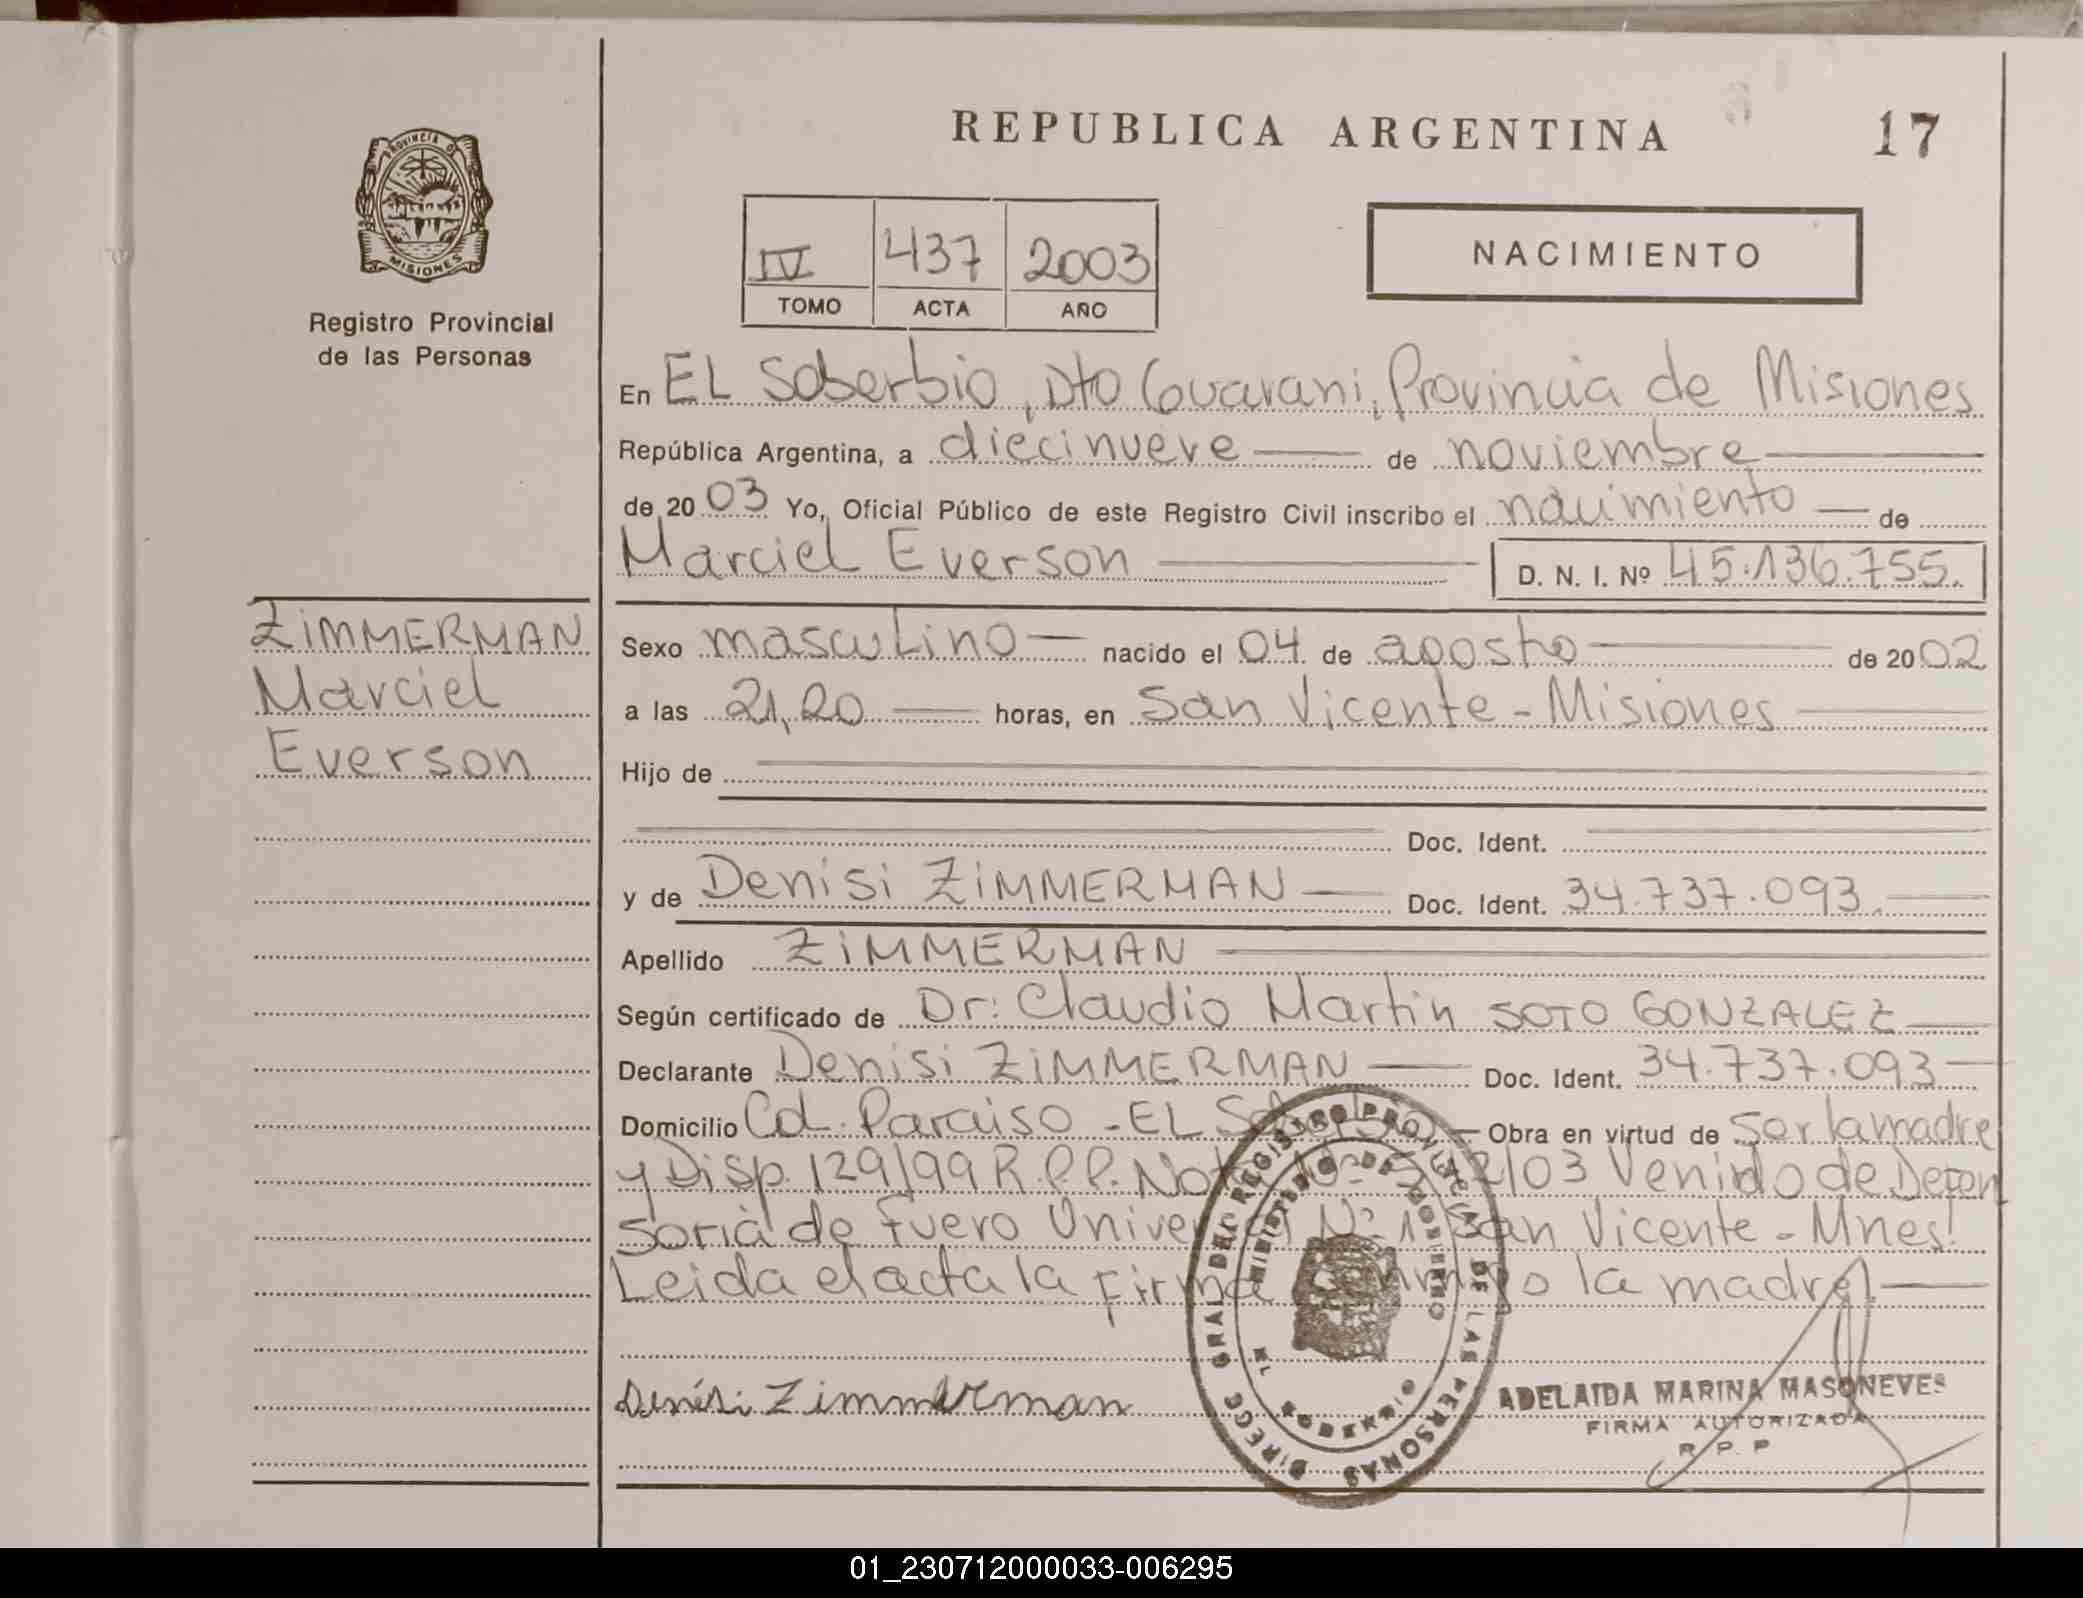 REPUBLICA ARGENTINA
17
PROVINCIA D
MISIONES
Registro Provincial
de las Personas
IV 437 2003
TOMO ACTA AÑO
NACIMIENTO
En EL Soberbio, Dto Guarani, Provincia de Misiones
República Argentina, a diecinueve de noviembre
de 2003 Yo, Oficial Público de este Registro Civil inscribo el nacimiento de
Marciel Everson D. N. I. Nº 45.136.755.
ZIMMERMAN
Marciel
Everson
Sexo masculino nacido el 04 de agosto de 2002
a las 21,20 horas, en San Vicente - Misiones
Hijo de
Doc. Ident.
y de Denisi ZIMMERMAN Doc. Ident. 34.737.093.
Apellido ZIMMERMAN
Según certificado de Dr: Claudio Martin SOTO GONZALEZ
Declarante Denisi ZIMMERMAN Doc. Ident. 34.737.093
Domicilio Col. Paraiso - EL Soberbio Obra en virtud de ser la madre
y Disp. 129/99 R.P.P. Nota Nº /03 Venido de Defen
soria de Fuero Universal Nº 1 San Vicente - Mnes.
Leida el acta la Firma conmigo la madre.
Denisi Zimmerman
DIRECC GRAL DEL REGISTRO PROVINCIAL DE LAS PERSONAS
MINISTERIO DE GOBIERNO
EL SOBERBIO
ADELAIDA MARINA MASONEVES
FIRMA AUTORIZADA
R. P. P
01_230712000033-006295